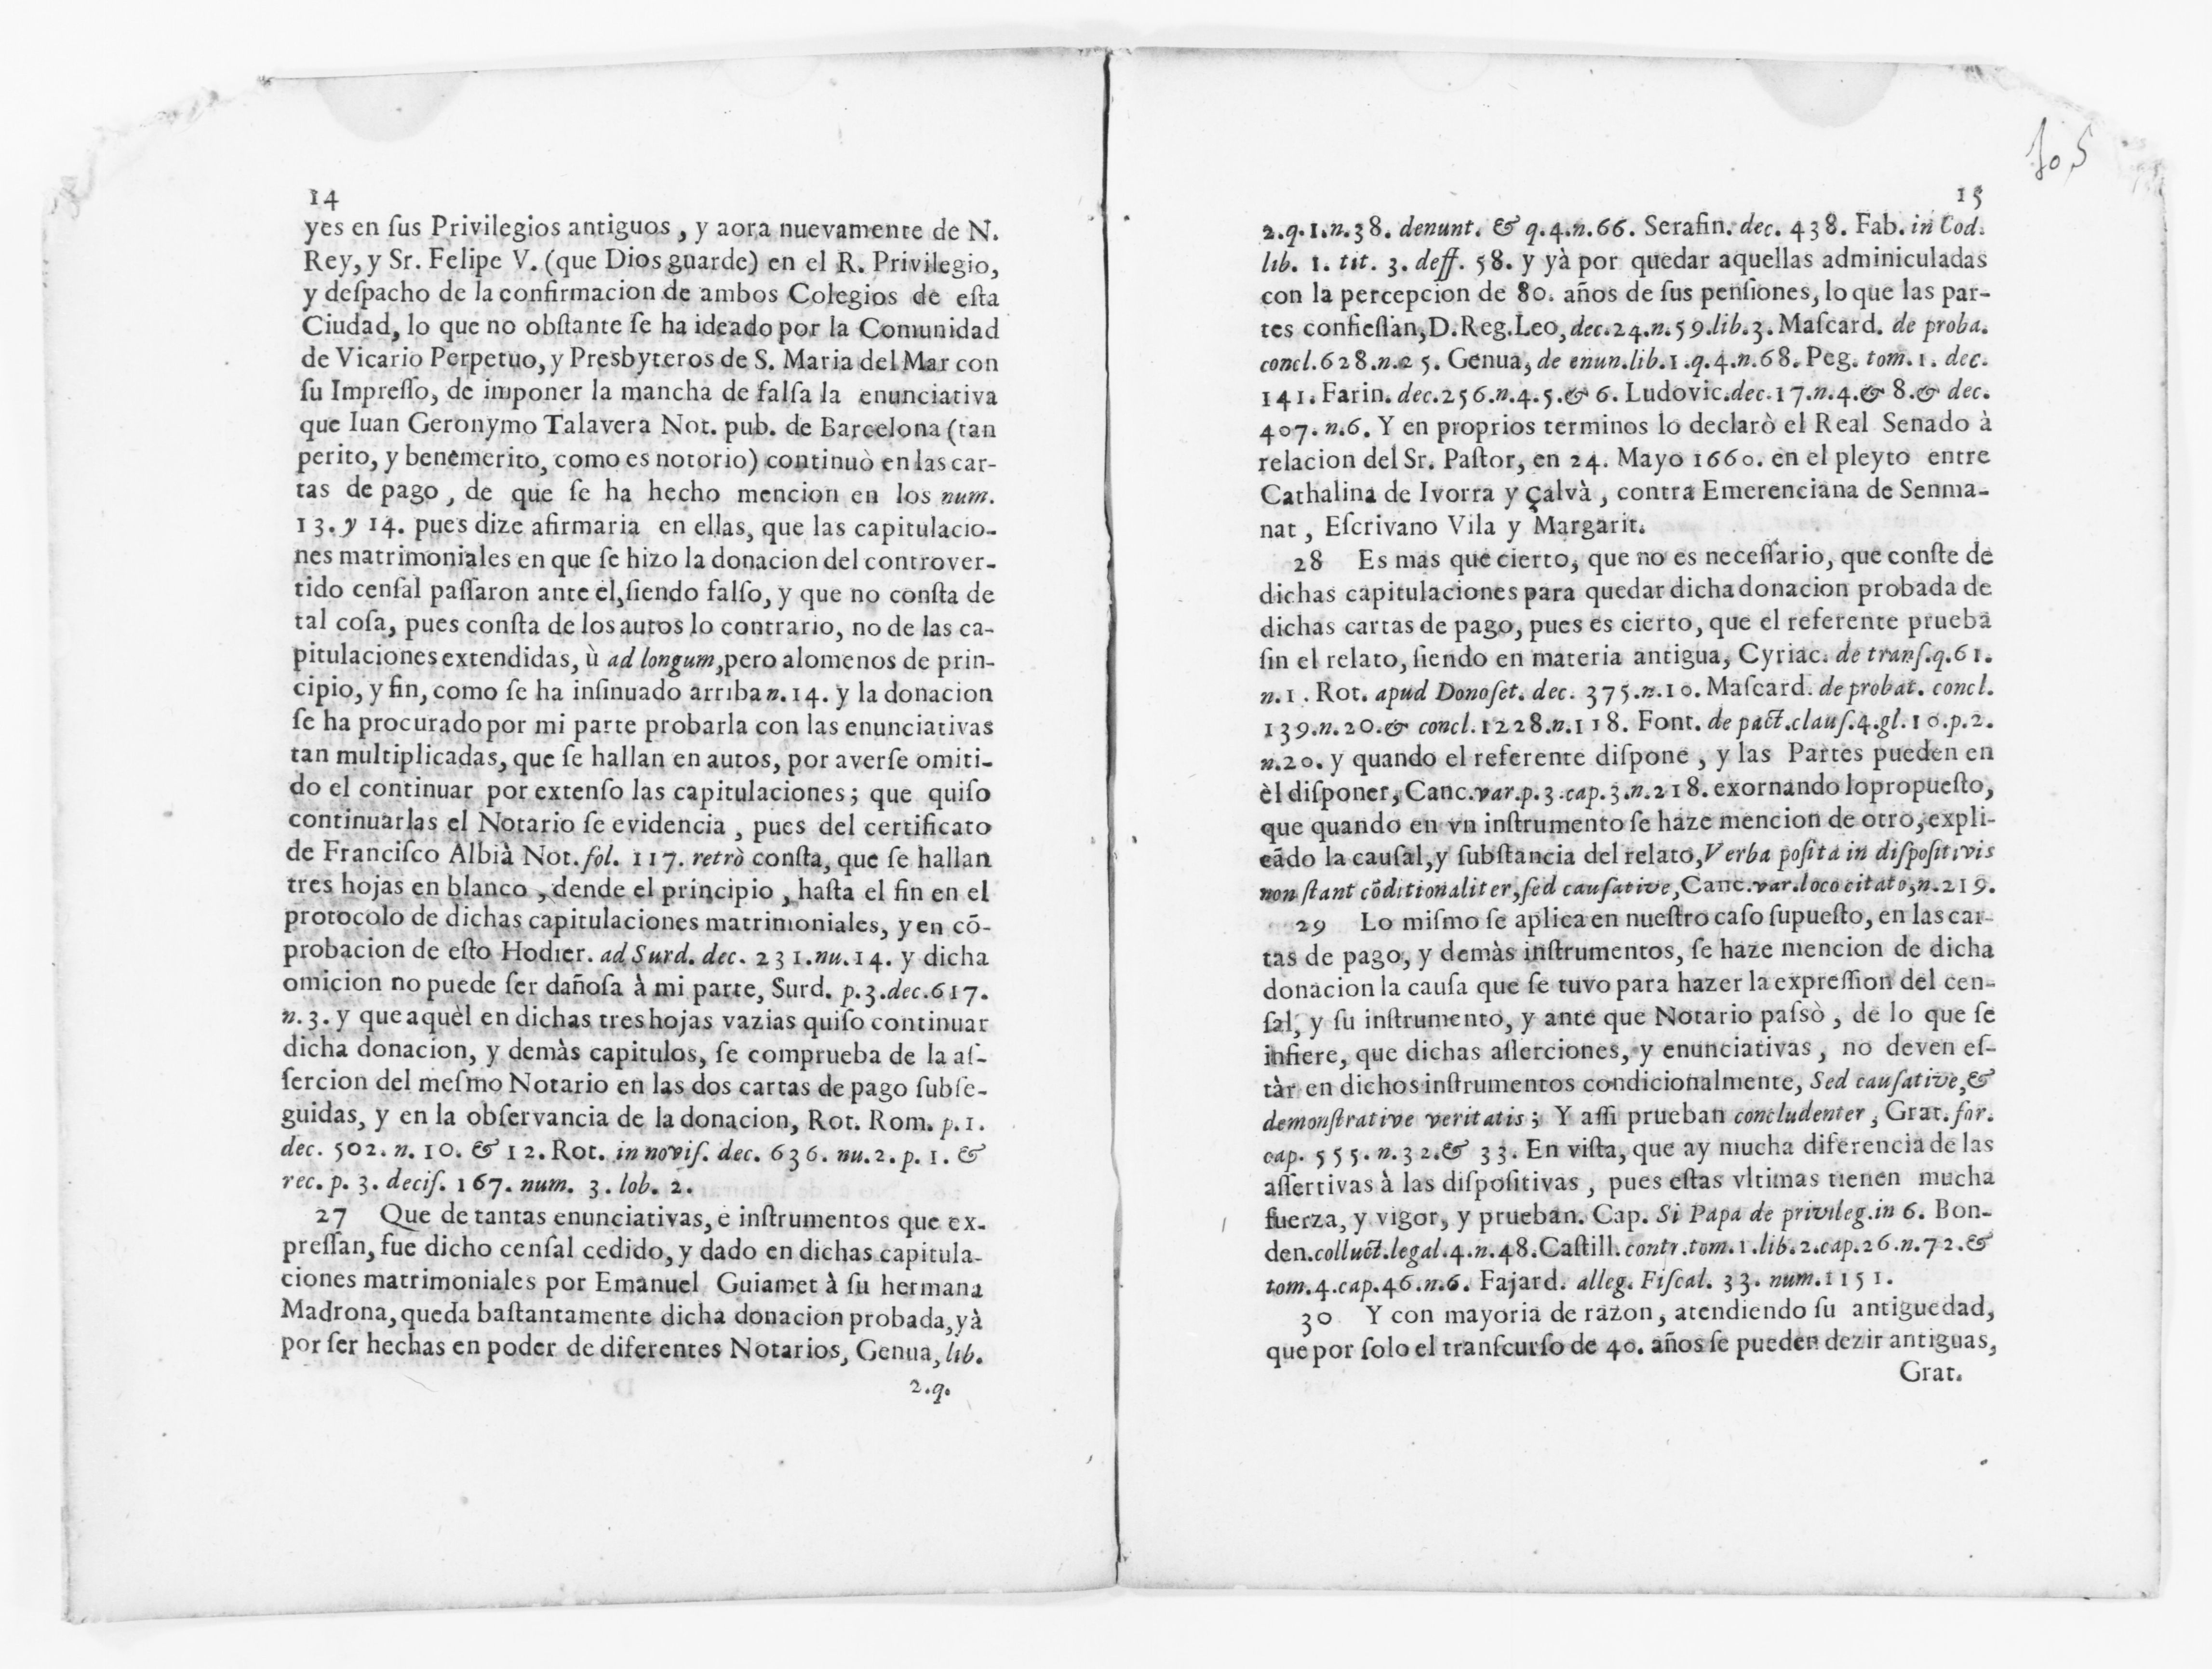 14
yes en ſus Privilegios antiguos, y aora nuevamente de N.
Rey, y Sr. Felipe V. (que Dios guarde) en el R. Privilegio,
y deſpacho de la confirmacion de ambos Colegios de eſta
Ciudad, lo que no obſtante ſe ha ideado por la Comunidad
de Vicario Perpetuo, y Presbyteros de S. Maria del Mar con
ſu Impreſſo, de imponer la mancha de falſa la enunciativa
que Iuan Geronymo Talavera Not. pub. de Barcelona (tan
perito, y benemerito, como es notorio) continuò en las car-
tas de pago, de que ſe ha hecho mencion en los num.
13. y 14. pues dize afirmaria en ellas, que las capitulacio-
nes matrimoniales en que ſe hizo la donacion del controver-
tido cenſal paſſaron ante èl, ſiendo falſo, y que no conſta de
tal coſa, pues conſta de los autos lo contrario, no de las ca-
pitulaciones extendidas, ù ad longum, pero alomenos de prin-
cipio, y fin, como ſe ha inſinuado arriba n. 14. y la donacion
ſe ha procurado por mi parte probarla con las enunciativas
tan multiplicadas, que ſe hallan en autos, por averſe omiti-
do el continuar por extenſo las capitulaciones; que quiſo
continuarlas el Notario ſe evidencia, pues del certificato
de Franciſco Albià Not. fol. 117. retrò conſta, que ſe hallan
tres hojas en blanco, dende el principio, haſta el fin en el
protocolo de dichas capitulaciones matrimoniales, y en cõ-
probacion de eſto Hodier. ad Surd. dec. 231. nu. 14. y dicha
omicion no puede ſer dañoſa à mi parte, Surd. p.3. dec. 617.
n. 3. y que aquèl en dichas tres hojas vazias quiſo continuar
dicha donacion, y demàs capitulos, ſe comprueba de la aſ-
ſercion del meſmo Notario en las dos cartas de pago ſubſe-
guidas, y en la obſervancia de la donacion, Rot. Rom. p. 1.
dec. 502. n. 10. & 12. Rot. in noviſ. dec. 636. nu. 2. p. 1. &
rec. p. 3. deciſ. 167. num. 3. lob. 2.
27 Que de tantas enunciativas, e inſtrumentos que ex-
preſſan, fue dicho cenſal cedido, y dado en dichas capitula-
ciones matrimoniales por Emanuel Guiamet à ſu hermana
Madrona, queda baſtantamente dicha donacion probada, yà
por ſer hechas en poder de diferentes Notarios, Genua, lib.
2.q.
15
2.q.1.n.38. denunt. & q.4.n.66. Serafin. dec. 438. Fab. in Cod.
lib. 1. tit. 3. deff. 58. y yà por quedar aquellas adminiculadas
con la percepcion de 80. años de ſus penſiones, lo que las par-
tes confieſſan, D. Reg. Leo, dec. 24. n. 59. lib. 3. Maſcard. de proba.
concl. 628. n. 25. Genua, de enun. lib. 1. q. 4. n. 68. Peg. tom. 1. dec.
141. Farin. dec. 256. n. 4. 5. & 6. Ludovic. dec. 17. n. 4. & 8. & dec.
407. n. 6. Y en proprios terminos lo declarò el Real Senado à
relacion del Sr. Paſtor, en 24. Mayo 1660. en el pleyto entre
Cathalina de Ivorra y Çalvà, contra Emerenciana de Senma-
nat, Eſcrivano Vila y Margarit.
28 Es mas que cierto, que no es neceſſario, que conſte de
dichas capitulaciones para quedar dicha donacion probada de
dichas cartas de pago, pues es cierto, que el referente prueba
ſin el relato, ſiendo en materia antigua, Cyriac. de tranſ. q. 61.
n. 1. Rot. apud Donoſet. dec. 375. n. 10. Maſcard. de probat. concl.
139. n. 20. & concl. 1228. n. 118. Font. de pact. clauſ. 4. gl. 10. p. 2.
n. 20. y quando el referente diſpone, y las Partes pueden en
èl diſponer, Canc. var. p. 3. cap. 3. n. 218. exornando lo propueſto,
que quando en vn inſtrumento ſe haze mencion de otro, expli-
cãdo la cauſal, y ſubſtancia del relato, Verba poſita in diſpoſitivis
non ſtant cõditionaliter, ſed cauſative, Canc. var. loco citato, n. 219.
29 Lo miſmo ſe aplica en nueſtro caſo ſupueſto, en las car-
tas de pago, y demàs inſtrumentos, ſe haze mencion de dicha
donacion la cauſa que ſe tuvo para hazer la expreſſion del cen-
ſal, y ſu inſtrumento, y ante que Notario paſsò, de lo que ſe
infiere, que dichas aſſerciones, y enunciativas, no deven eſ-
tàr en dichos inſtrumentos condicionalmente, Sed cauſative, &
demonſtrative veritatis; Y aſſi prueban concludenter, Grat. for.
cap. 555. n. 32. & 33. En viſta, que ay mucha diferencia de las
aſſertivas à las diſpoſitivas, pues eſtas vltimas tienen mucha
fuerza, y vigor, y prueban. Cap. Si Papa de privileg. in 6. Bon-
den. colluct. legal. 4. n. 48. Caſtill. contr. tom. 1. lib. 2. cap. 26. n. 72. &
tom. 4. cap. 46. n. 6. Fajard. alleg. Fiſcal. 33. num. 1151.
30 Y con mayoria de razon, atendiendo ſu antiguedad,
que por ſolo el tranſcurſo de 40. años ſe pueden dezir antiguas,
Grat.